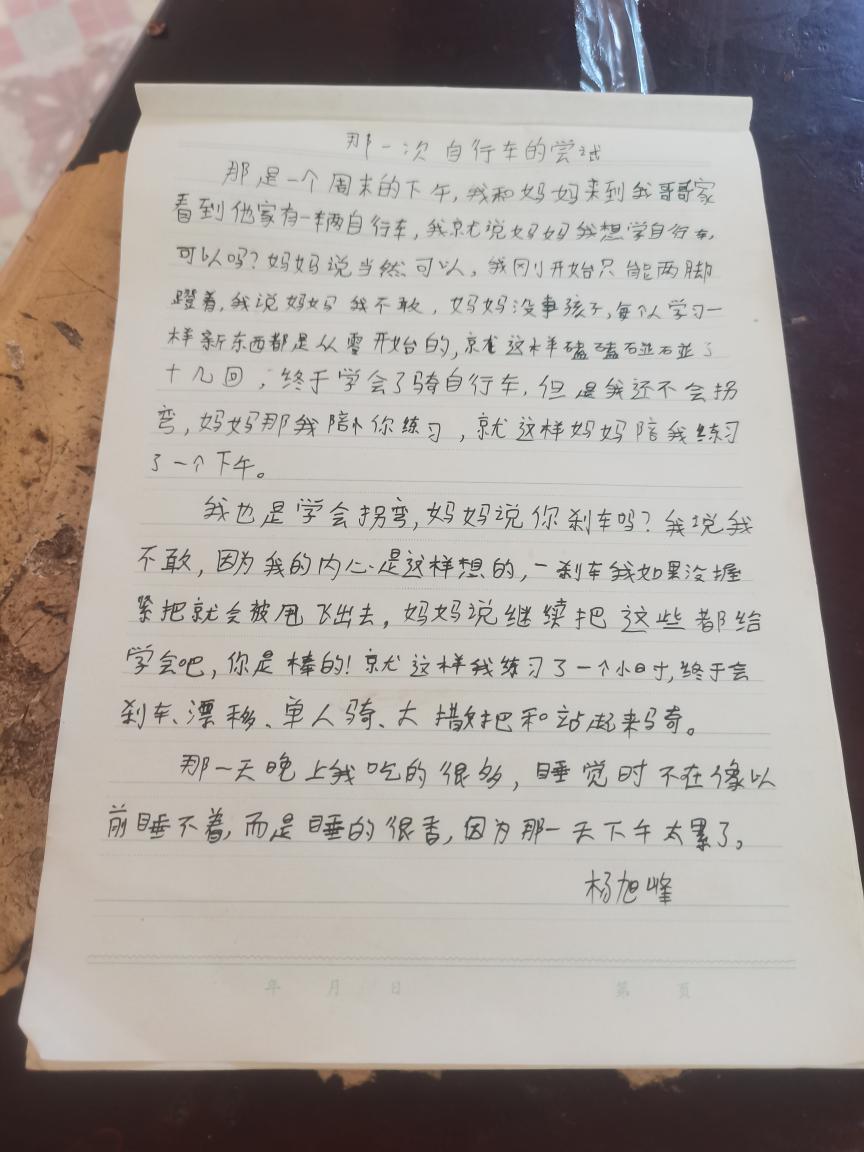 那一次自行车的尝试
那是一个周末的下午,我和妈妈来到我哥哥家
看到他家有一辆自行车,我就说妈妈我想学自行车,
可以吗?妈妈说当然可以,我刚开始只能两脚
蹬着,我说妈妈我不敢,妈妈没事孩子,每个人学习一
样新东西都是从零开始的,就这样磕磕碰碰了
十几回,终于学会了骑自行车,但是我还不会拐
弯,妈妈那我陪你练习,就这样妈妈陪我练习
了一个下午。
我也是学会拐弯,妈妈说你刹车吗?我说我
不敢,因为我的内心是这样想的,一刹车我如果没握
紧把就会被甩飞出去,妈妈说继续把这些都给
学会吧,你是棒的!就这样我练习了一个小时,终于会
刹车、漂移、单人骑、大撒把和站起来骑。
那一天晚上我吃的很多,睡觉时不在像以
前睡不着,而是睡的很香,因为那一天下午太累了。
杨旭峰
年 月 日 第 页